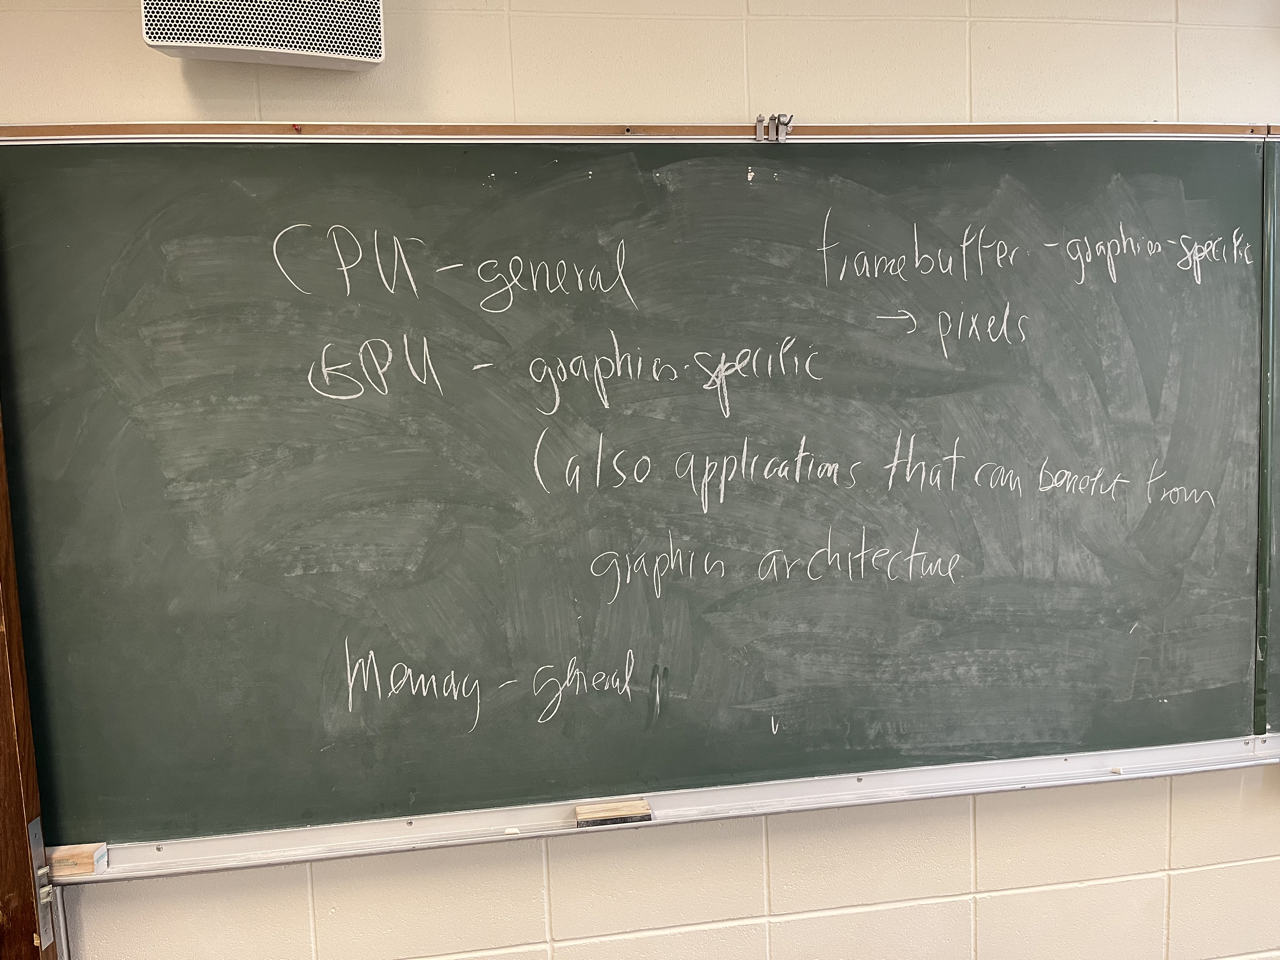 CPU - general
GPU - graphics-specific
(also applications that can benefit from
graphics architecture
Memory - general
framebuffer - graphics-specific
→ pixels